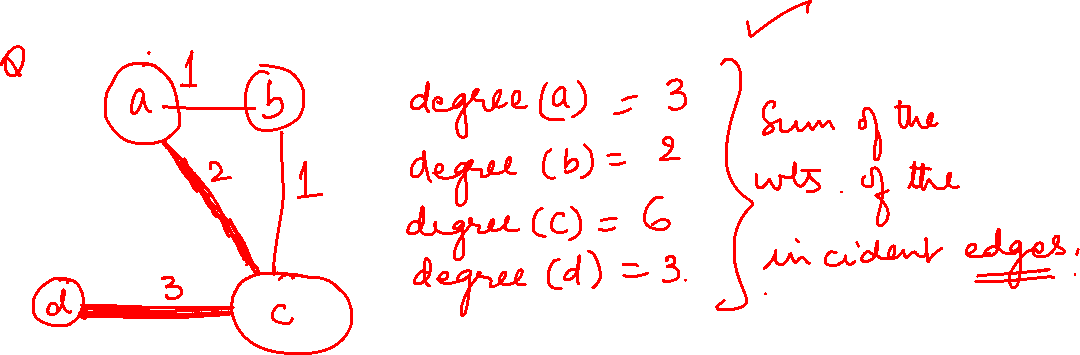 Q
1
a
b
2
1
3
d
c
degree (a) = 3
degree (b) = 2
degree (c) = 6
degree (d) = 3.
Sum of the
wts. of the
incident edges.